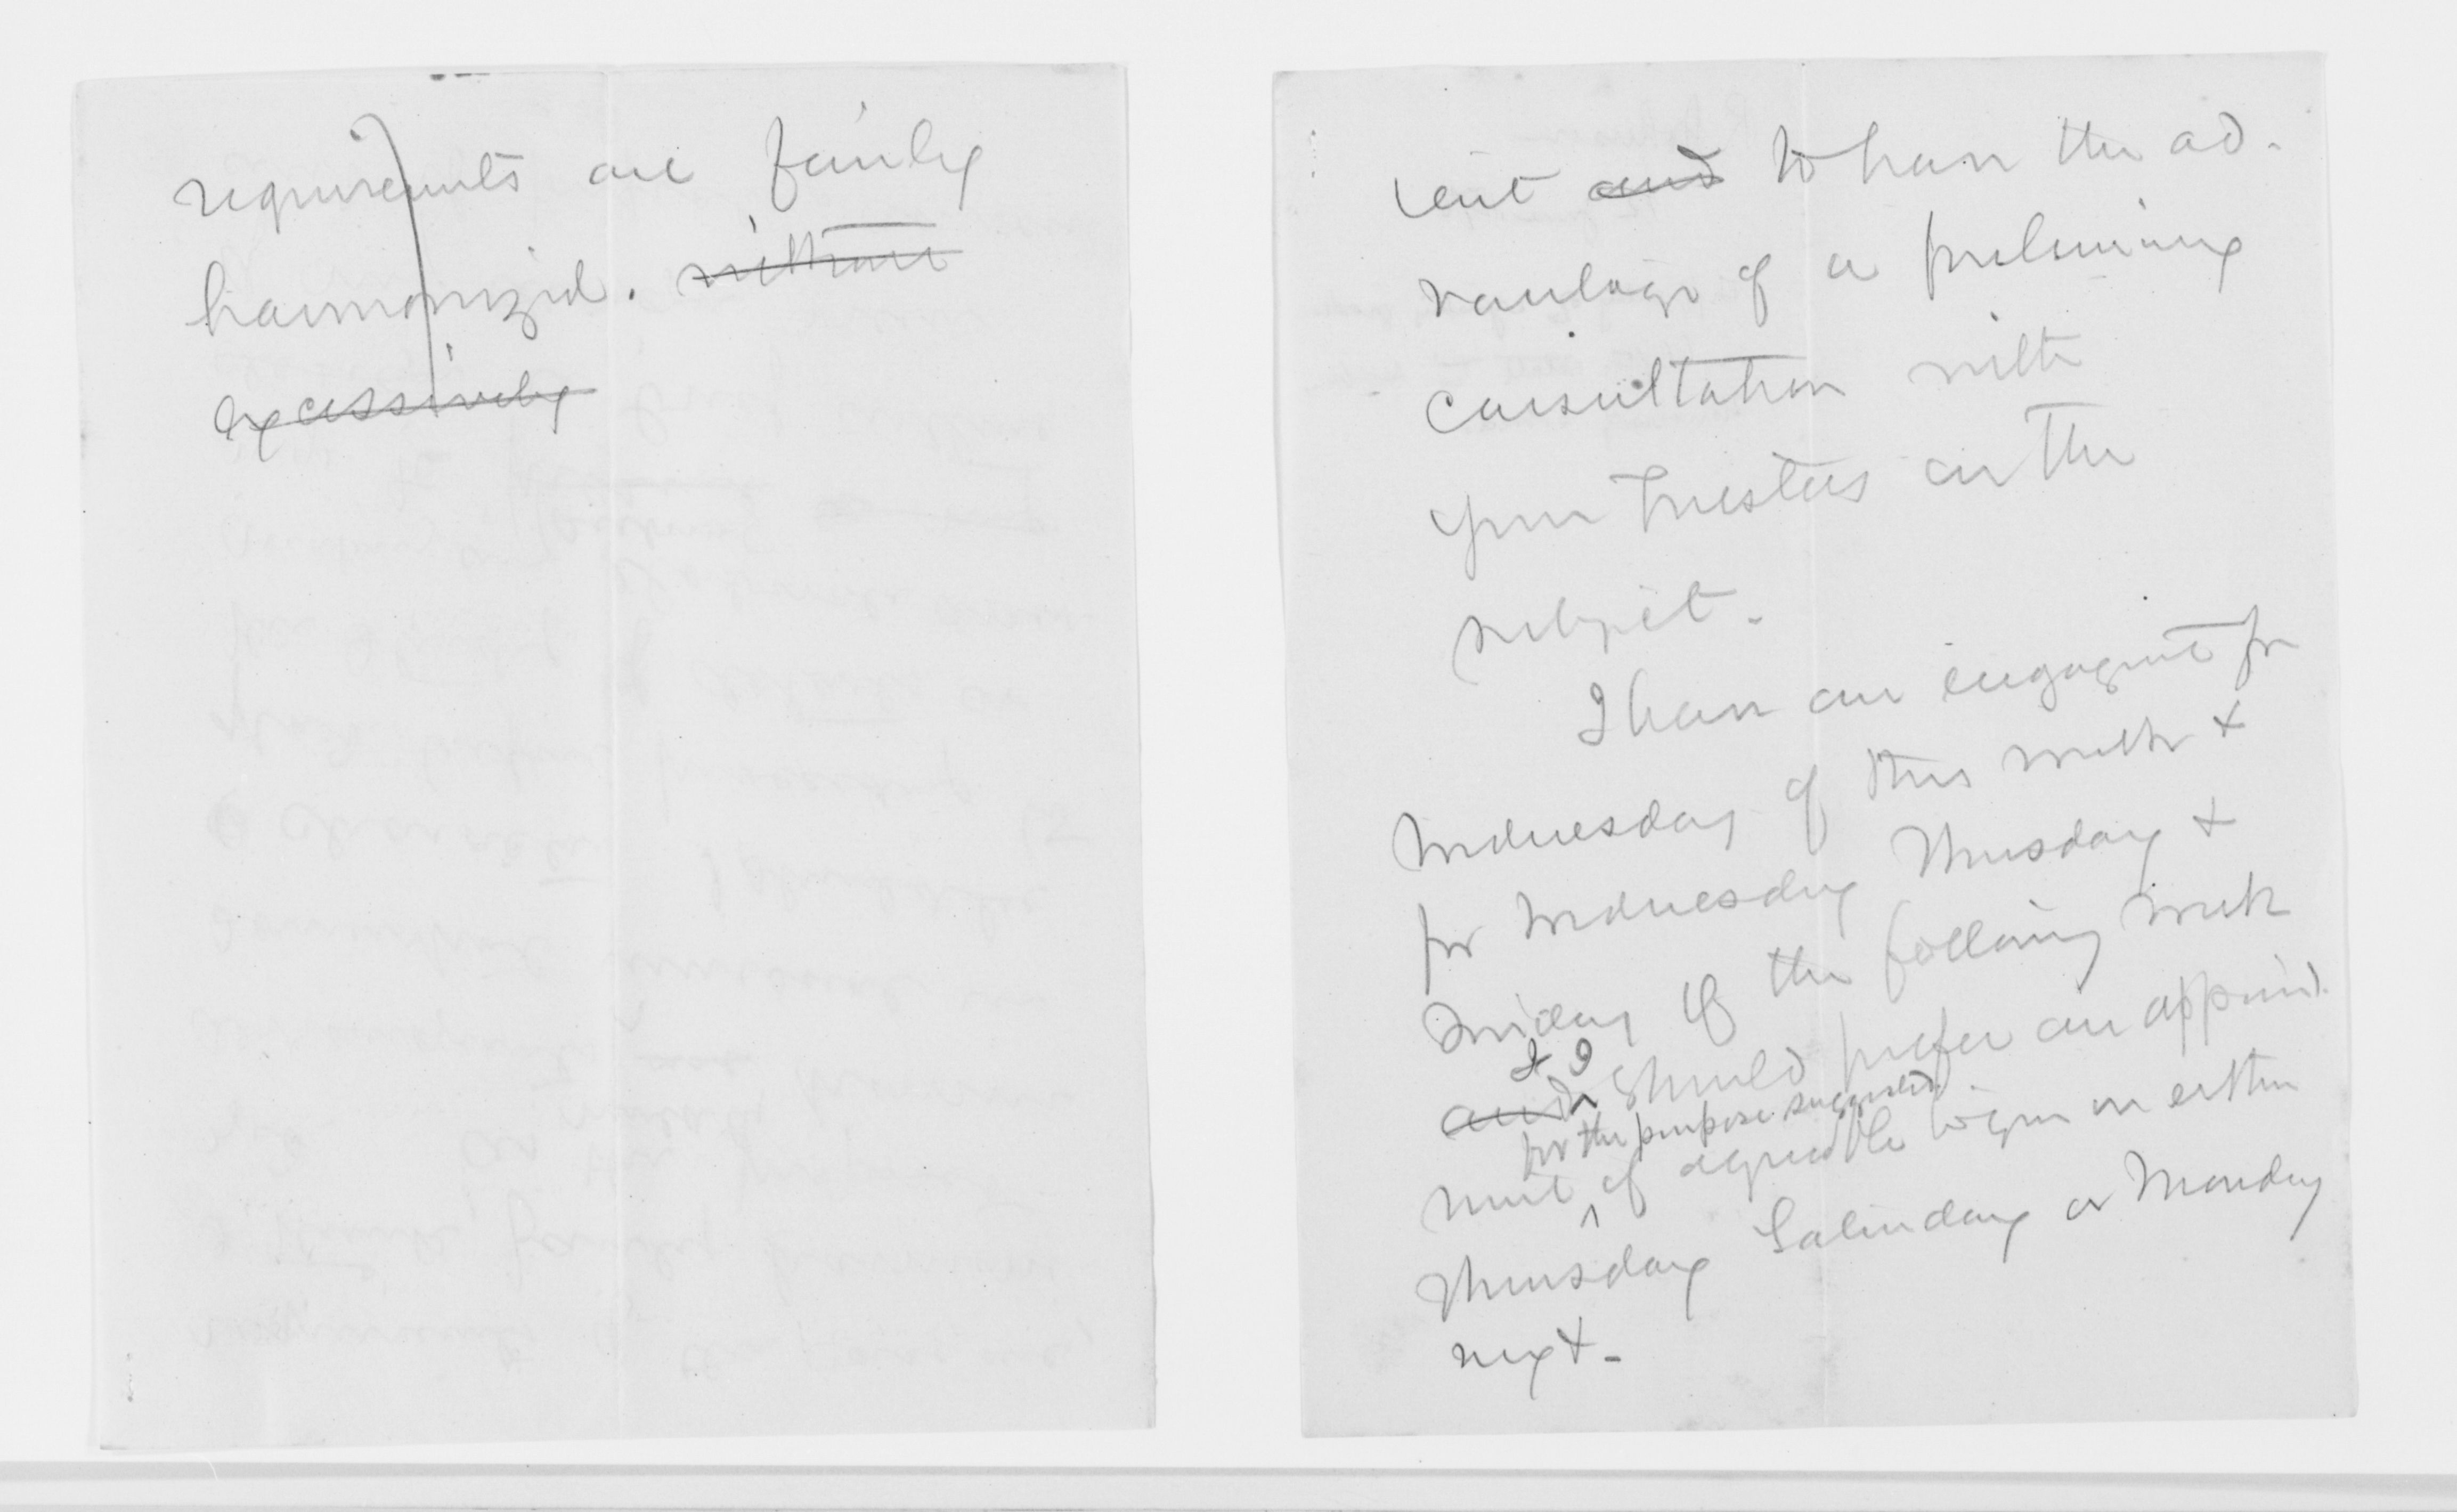 requirements are fairly
harmonized. without
excessively
vent and to have the ad-
vantage of a preliminary
consultation with
your Trustees on the
subject.
I have an engagement for
Wednesday of this week &
for Wednesday Thursday &
Friday of the following week
& I
and should prefer an appoint-
for the purpose suggested
ment if agreeable to you on either
Thursday Saturday or Monday
next-